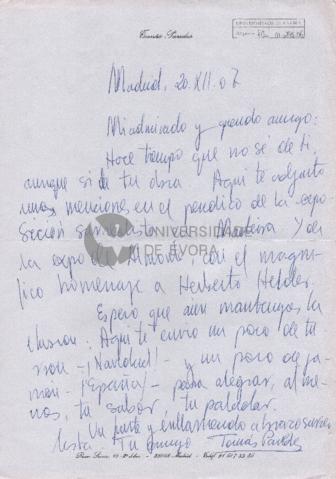 Tomás Paredes
UNIVERSIDADE DE ÉVORA
Madrid, 20.XII.07
Mi admirado y querido amigo:
Hace tiempo que no sé de ti,
aunque sí de tu obra. Aquí te adjunto
unas menciones en el periódico de la expo
sición surrealista Madeira y de
la expo de con el magní-
fico homenaje a Herberto Helder.
Espero que aún mantengas la
ilusión: Aquí te envío un poco de tu
rrón - ¡Navidad! - y un poco de ja-
món - ¡España! - para alegrar, al me-
nos, tu sabor, tu paladar.
Un fuerte y abrazo surrea-
lista. Tu amigo Tomás Paredes
UNIVERSIDADE
DE ÉVORA